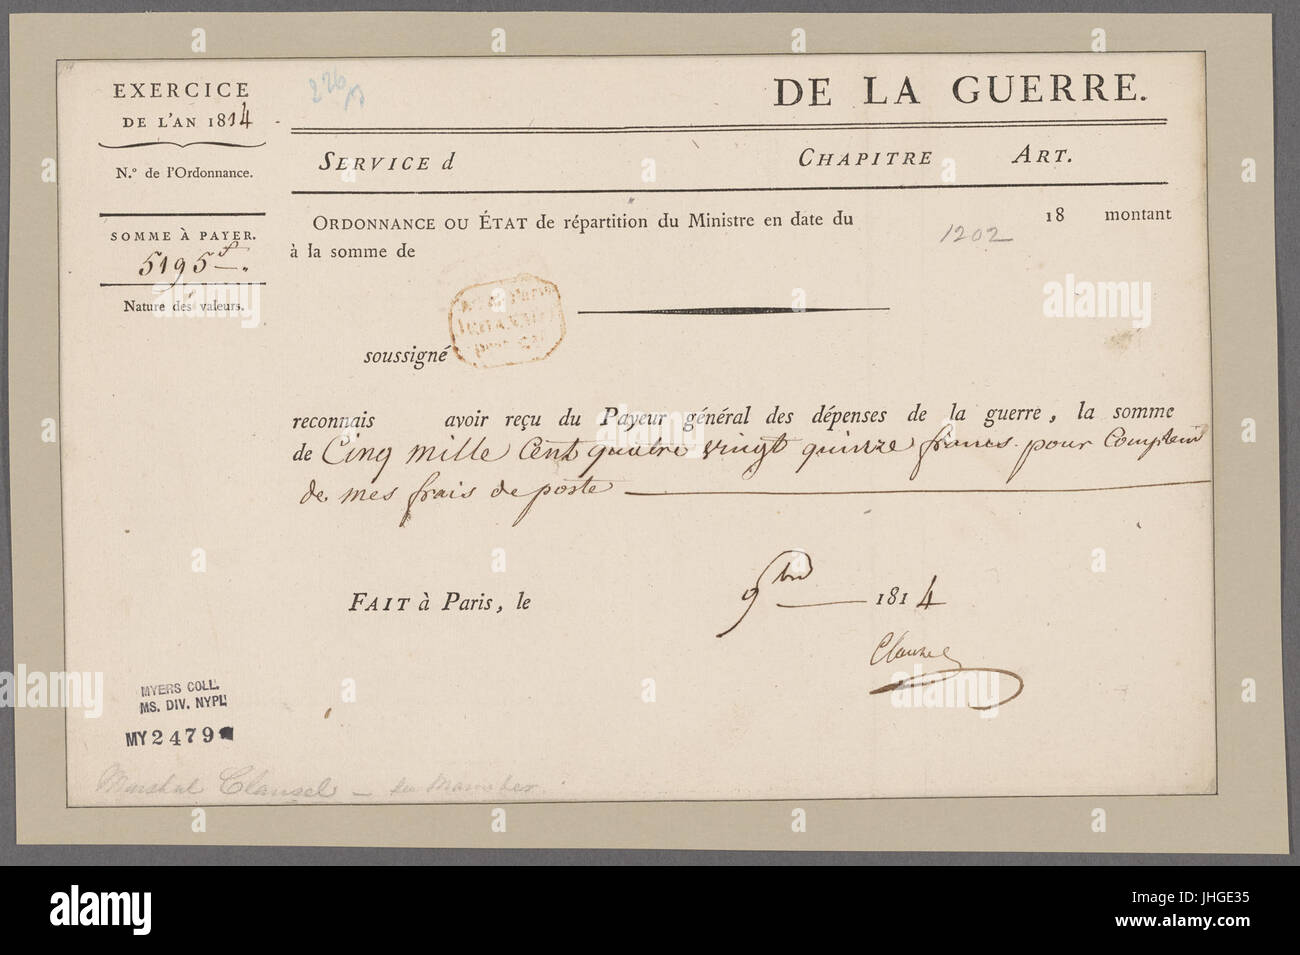 EXERCICE
DE L'AN 1814
N.º de l'Ordonnance.
SOMME À PAYER.
5195 f.
Nature des valeurs.
DE LA GUERRE.
SERVICE d CHAPITRE ART.
ORDONNANCE OU ÉTAT de répartition du Ministre en date du 18 montant
1202
à la somme de
soussigné
reconnais avoir reçu du Payeur général des dépenses de la guerre, la somme
de Cinq mille Cent quatre vingt quinze francs pour
de mes frais de poste
FAIT à Paris, le 9bre 1814
Clauzel
MYERS COLL.
MS. DIV. NYPL
MY 2479
Marshal Clausel
alamy
a
alamy stock photo
Image ID: JHGE35
www.alamy.com